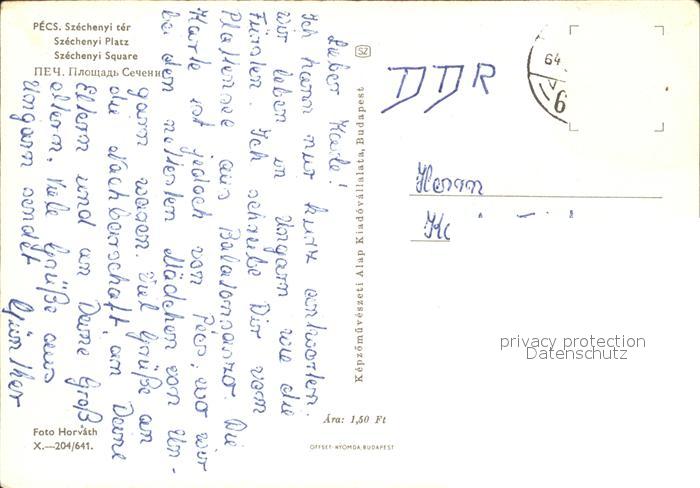 PÉCS. Széchenyi tér
Széchenyi Platz
Széchenyi Square
ПЕЧ. Площадь Сечени
Lieber Karle!
Ich kann nur kurz antworten.
Wir leben in Ungarn wie die
Fürsten. Ich schreibe Dir vom
Plattensee aus Balatonszarzo. Die
Karte ist jedoch von Pécs, wo wir
bei den nettesten Mädchen von Un-
garn waren. Viel Grüße an
die Nachbarschaft, an Deine
Eltern und an Deine Groß-
eltern. Viele Grüße aus
Ungarn sendet
Günther
Foto Horváth
X.—204/641.
SZ
Képzőművészeti Alap Kiadóvállalata, Budapest
Ára: 1,50 Ft
OFFSET-NYOMDA, BUDAPEST
DDR
64
V
Herrn
privacy protection
Datenschutz